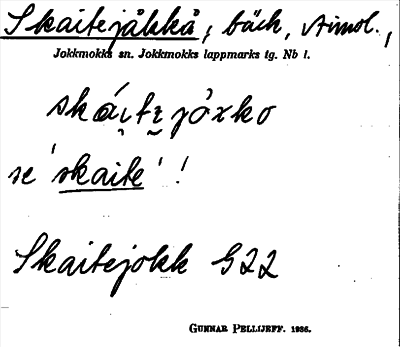 Skaitejåkkå, bäck, Arnol.,
Jokkmokks sn. Jokkmokks lappmarks tg. Nb l.
skái̯te̮jåxko
se 'skaite'!
Skaitejokk G22
GUNNAR PELLIJEFF. 1936.